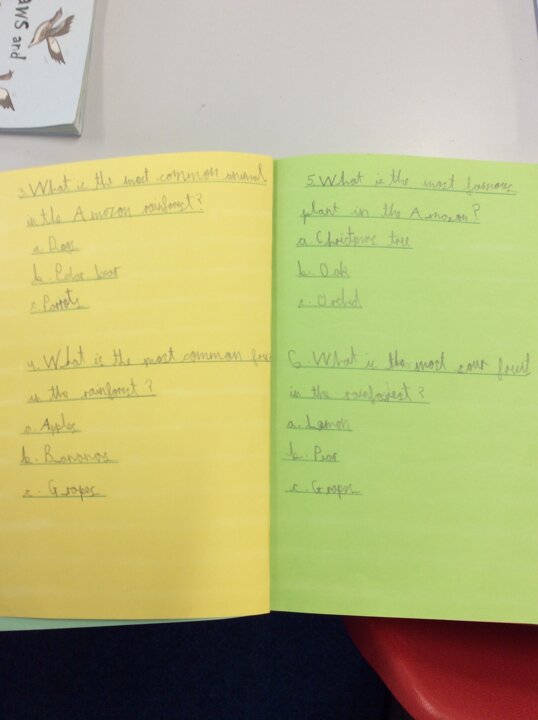 AWS and
3. What is the most common animal
in the Amazon rainforest?
a. Dogs
b. Polar bear
c. Parrots
4. What is the most common fruit
in the rainforest?
a. Apples
b. Bananas
c. Grapes
5. What is the most famous
plant in the Amazon?
a. Christmas tree
b. Oak
c. Orchid
6. What is the most sour fruit
in the rainforest?
a. Lemon
b. Pear
c. Grapes